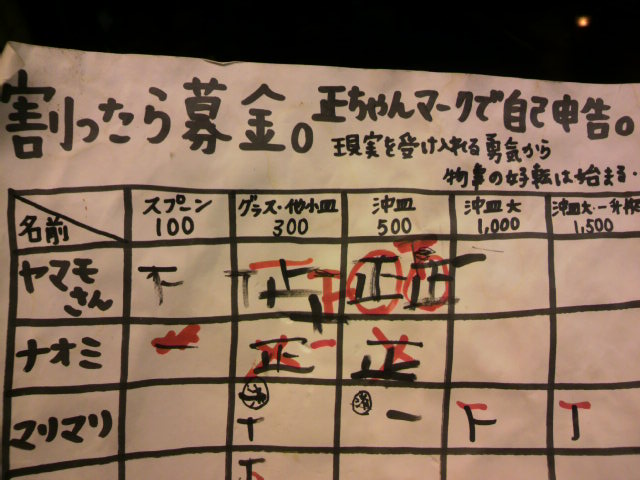 割ったら募金。正ちゃんマークで自己申告。
現実を受け入れる勇気から
物事の好転は始まる・
名前 スプーン 100 グラス・他小皿 300 沖皿 500 沖皿大 1,000 沖皿大・一升瓶 1,500
ヤマモさん 下 正 正 正
ナオミ 一 正 一 正
マリマリ 済 T 済 一 下 T